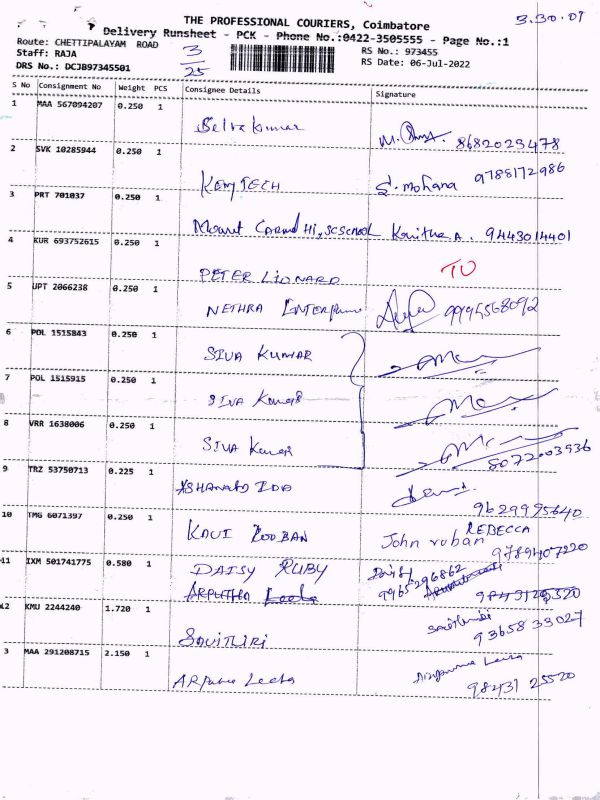 THE PROFESSIONAL COURIERS, Coimbatore
3.30.07
Delivery Runsheet - PCK - Phone No.:0422-3505555 - Page No.:1
Route: CHETTIPALAYAM ROAD
3/25
RS No.: 973455
Staff: RAJA
RS Date: 06-Jul-2022
DRS No.: DCJB97345501
S No Consignment No Weight PCS Consignee Details Signature
1 MAA 567094207 0.250 1
Selvakumar 8682029478
2 SVK 10285944 0.250 1
KemTECH S. mohana 9788172986
3 PRT 701037 0.250 1
Mount Carmel Hi,SCSCHOOL Kavitha A. 9443014401
4 KUR 693752615 0.250 1
PETER LIONARD TO
5 UPT 2066238 0.250 1
NETHRA Enterprises 9994568092
6 POL 1515843 0.250 1
SIVA KUMAR
7 POL 1515915 0.250 1
SIVA Kumar
8 VRR 1638006 0.250 1
SIVA Kumar
8072003936
9 TRZ 53750713 0.225 1
9629995640
10 TMG 6071397 0.250 1
KAVI ROOBAN John ruban REBECCA
9789407220
11 IXM 501741775 0.580 1
DAISY RUBY Daisy
9965296862
ARPUTHA Leela
12 KMU 2244240 1.720 1
SAVITHIRI 9365833027
3 MAA 291208715 2.150 1
Leela Leela
98431 25520